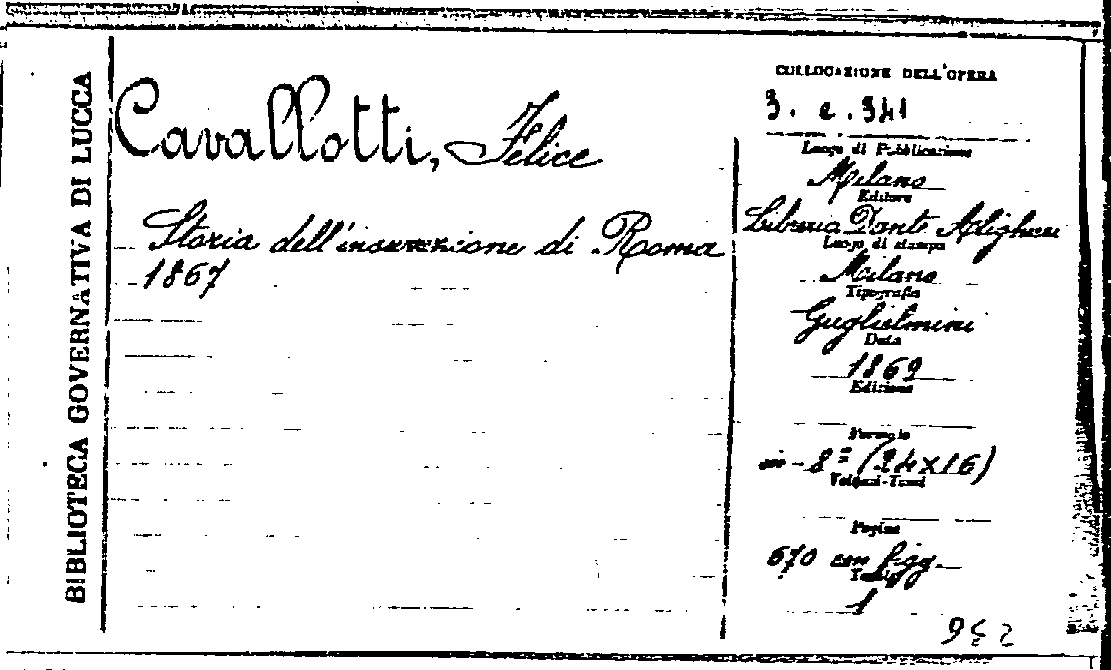 BIBLIOTECA GOVERNATIVA DI LUCCA
Cavallotti, Felice
Storia dell'insurrezione di Roma
1867
COLLOCAZIONE DELL'OPERA
3. e. 341
Luogo di Pubblicazione
Milano
Editore
Libreria Dante Alighieri
Luogo di stampa
Milano
Tipografia
Guglielmini
Data
1869
Edizione
Formato
in-8º (24x16)
Volumi-Tomi
Pagine
670 con figg.
1